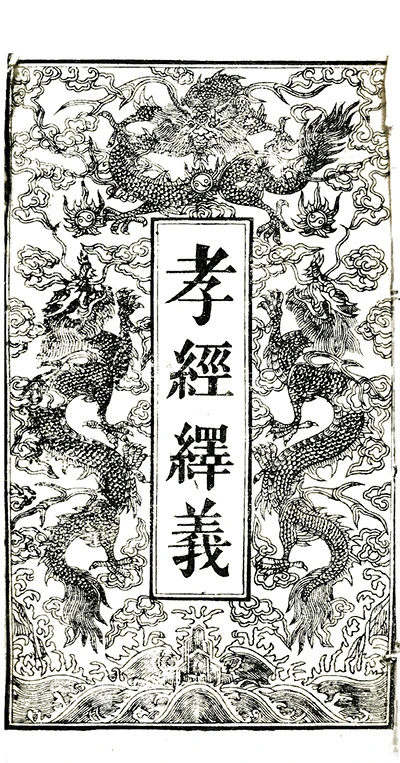 孝經繹義